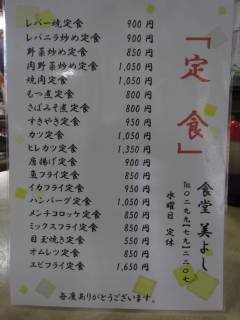 「定食」
レバー焼定食 900 円
レバニラ炒め定食 900 円
野菜炒め定食 850 円
肉野菜炒め定食 1,050 円
焼肉定食 1,050 円
もつ煮定食 800 円
さばみそ煮定食 800 円
すきやき定食 950 円
カツ定食 1,050 円
ヒレカツ定食 1,350 円
唐揚げ定食 900 円
魚フライ定食 850 円
イカフライ定食 950 円
ハンバーグ定食 1,050 円
メンチコロッケ定食 850 円
ミックスフライ定食 850 円
目玉焼き定食 550 円
オムレツ定食 850 円
エビフライ定食 1,650 円
毎度ありがとうございます。
食堂 美よし
℡〇二九九(七九)二二〇七
水曜日 定休